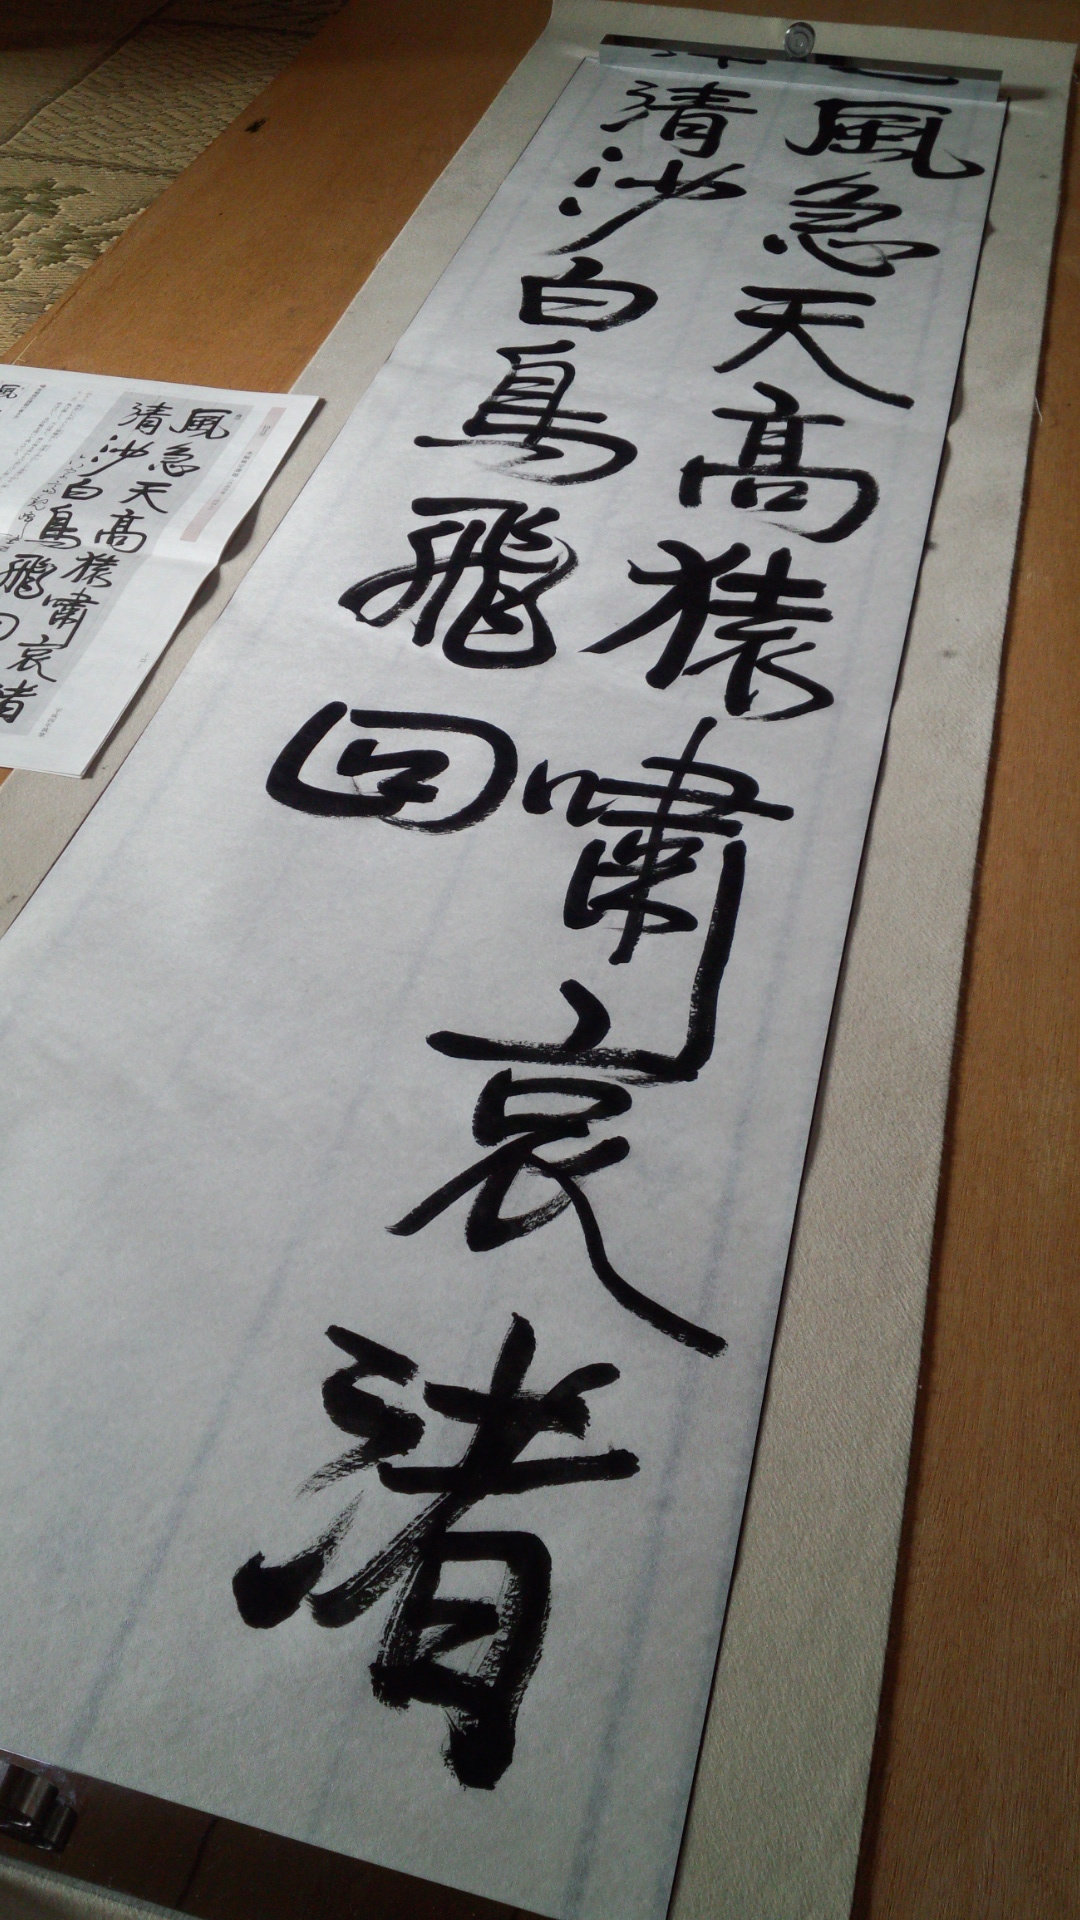 風急天高猿嘯哀渚
清沙白鳥飛回
風急天高猿嘯哀渚
清沙白鳥飛回